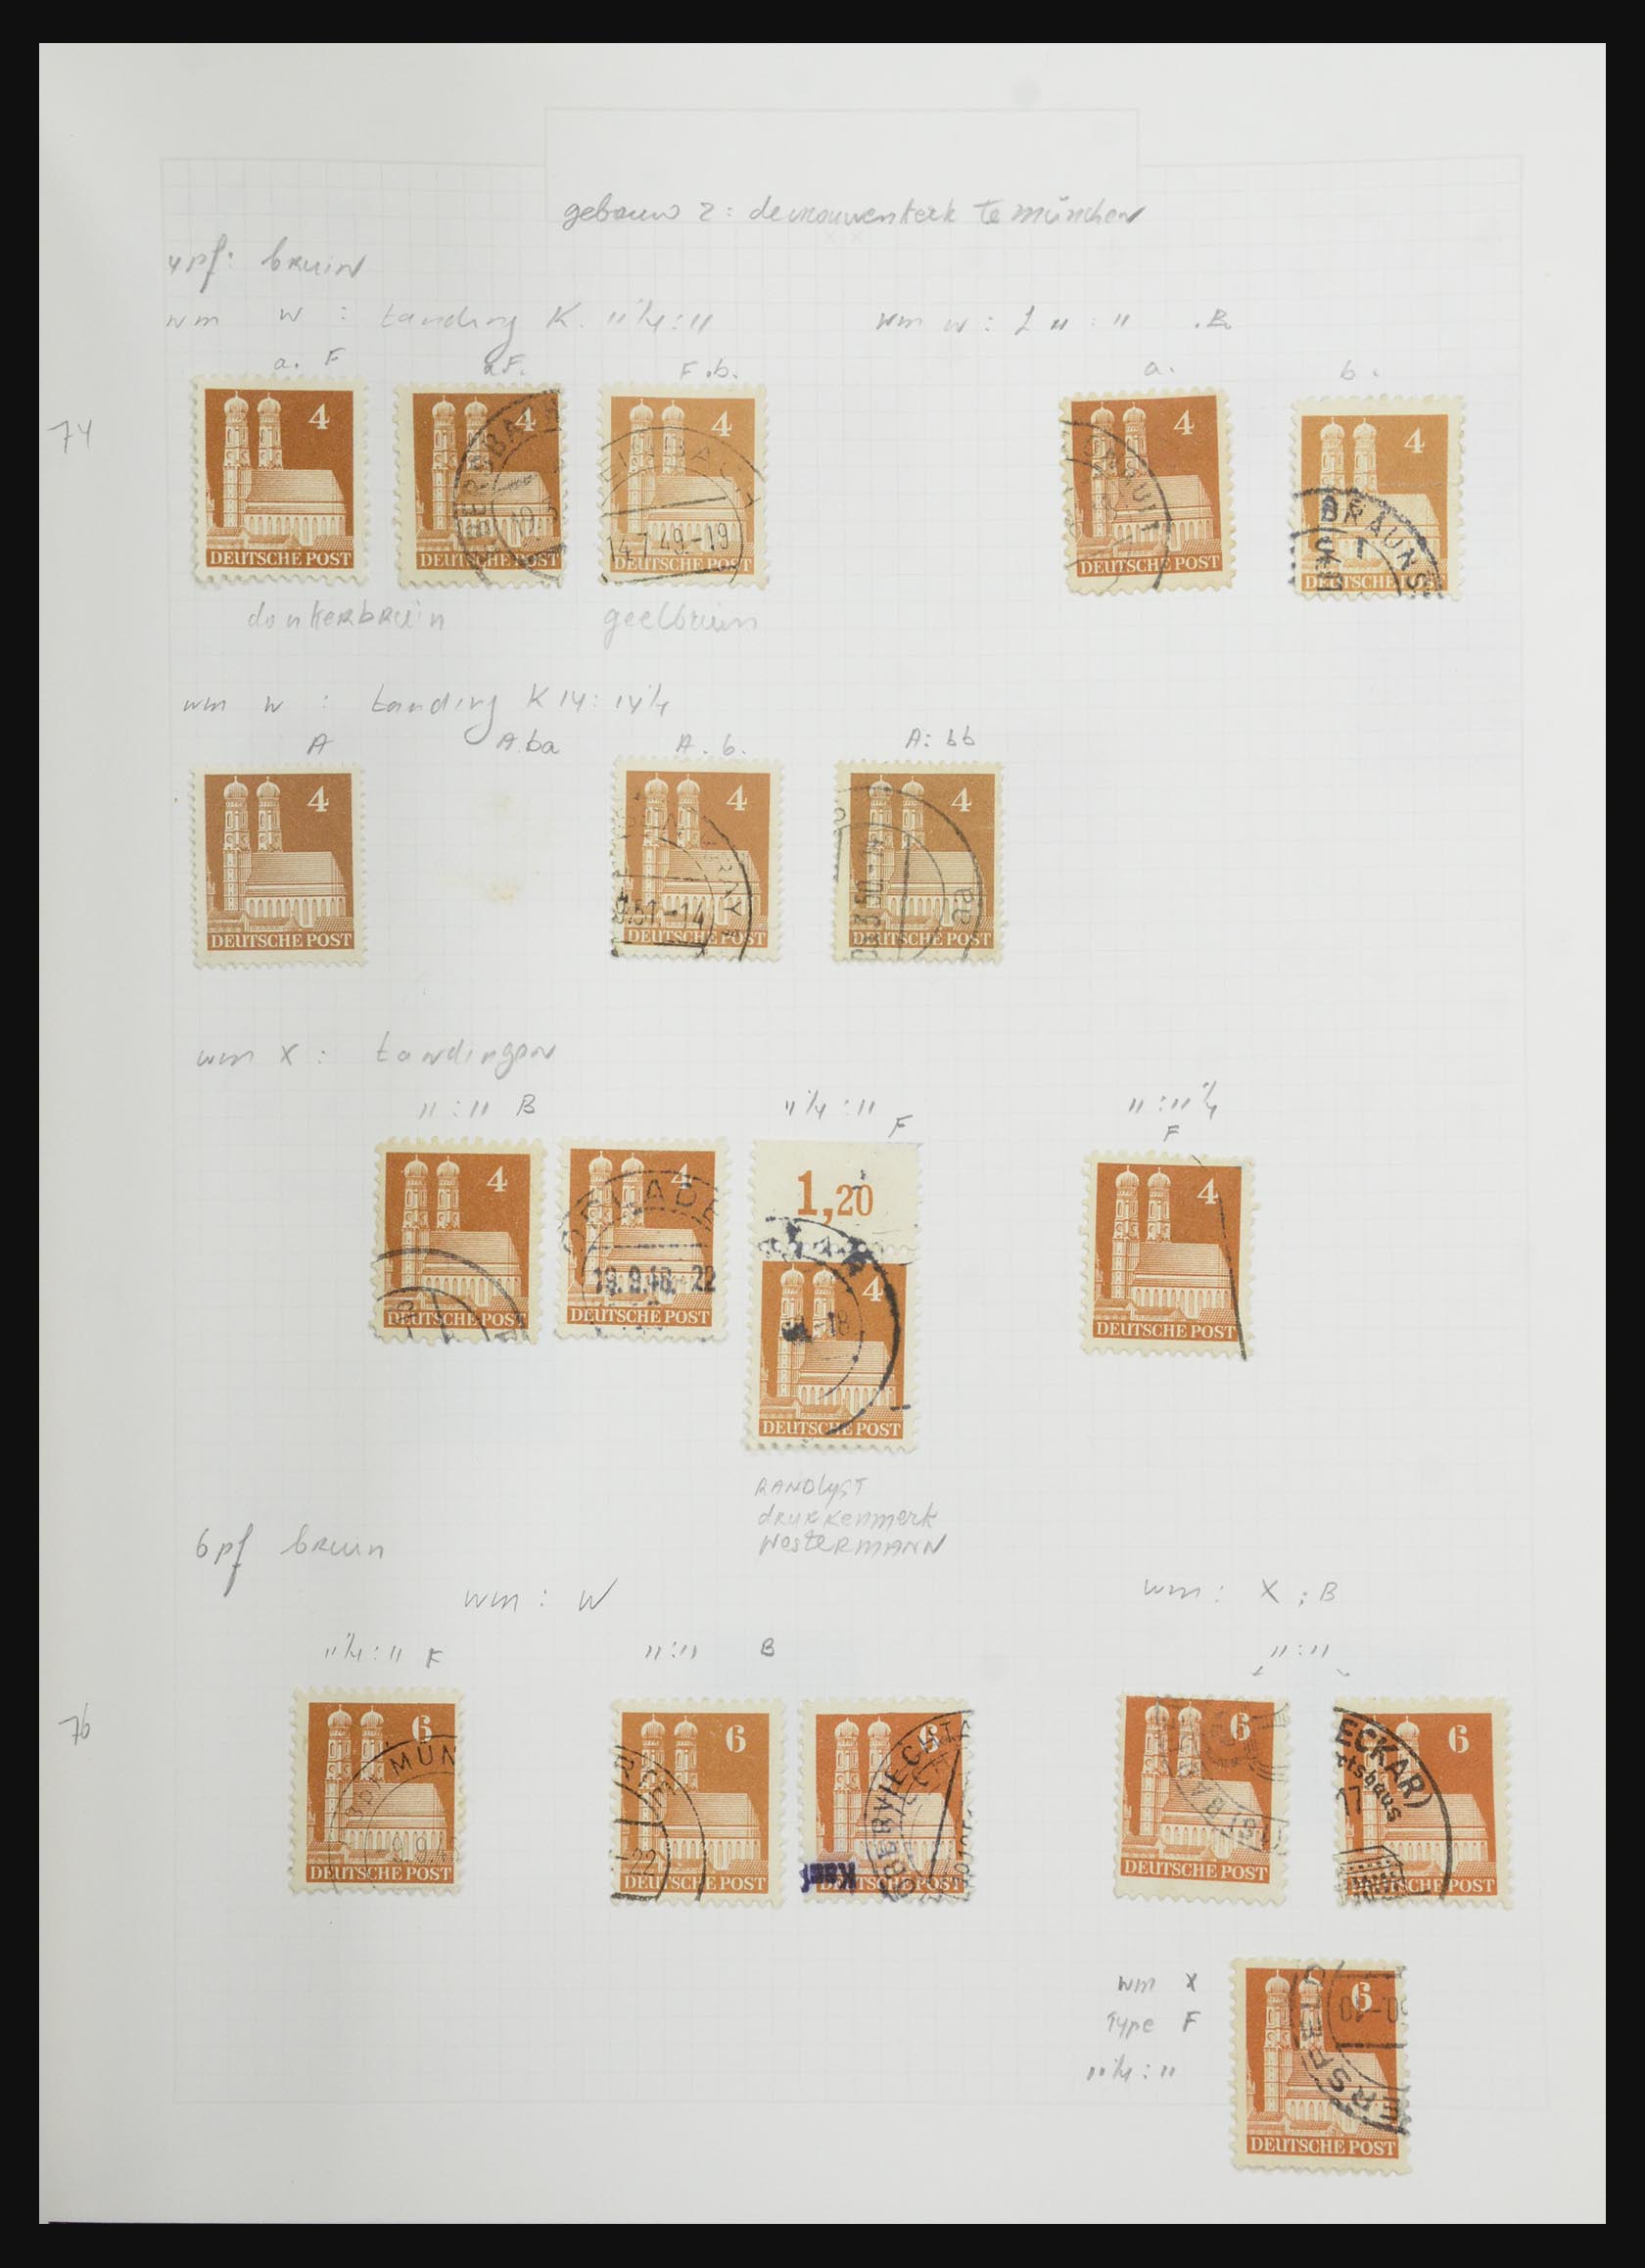 gebouw 2: de vrouwenkerk te münchen
4pf: bruin
wm W : tanding K. 11¼:11
wm w: L 11:11 .B.
a. F
a F.
F.b.
a.
b.
74
4
DEUTSCHE POST
4
DEUTSCHE POST
19.3
4
EINBACH
14.7.49.-19
DEUTSCHE POST
4
BRAUN
DEUTSCHE POST
4
BRAUNS
DEUTSCHE POST
donkerbruin
geelbruin
wm W : tanding K 14:14¼
A
A.ba
A.b.
A: bb
4
DEUTSCHE POST
4
9.51.-14
DEUTSCHE POST
4
3.50.-14
aa
DEUTSCHE POST
wm X : tandingen
11:11 B
11¼:11
F
11:11¼
F
4
DEUTSCHE POST
4
19.9.48.-22
DEUTSCHE POST
1,20
4
-18
DEUTSCHE POST
4
DEUTSCHE POST
RANDlijST
drukkenmerk
WesteRMANN
6pf bruin
wm : W
wm : X ; B
11¼:11 F
11:11 B
11:11
76
6
MÜN
9.9.4
DEUTSCHE POST
6
-22
DEUTSCHE POST
6
OBERVIECHTA
DEUTSCHE POST
6
DEUTSCHE POST
6
ECKAR)
tshaus
17
DEUTSCHE POST
wm X
Type F
11¼:11
6
0-10
ERSFELD
DEUTSCHE POST